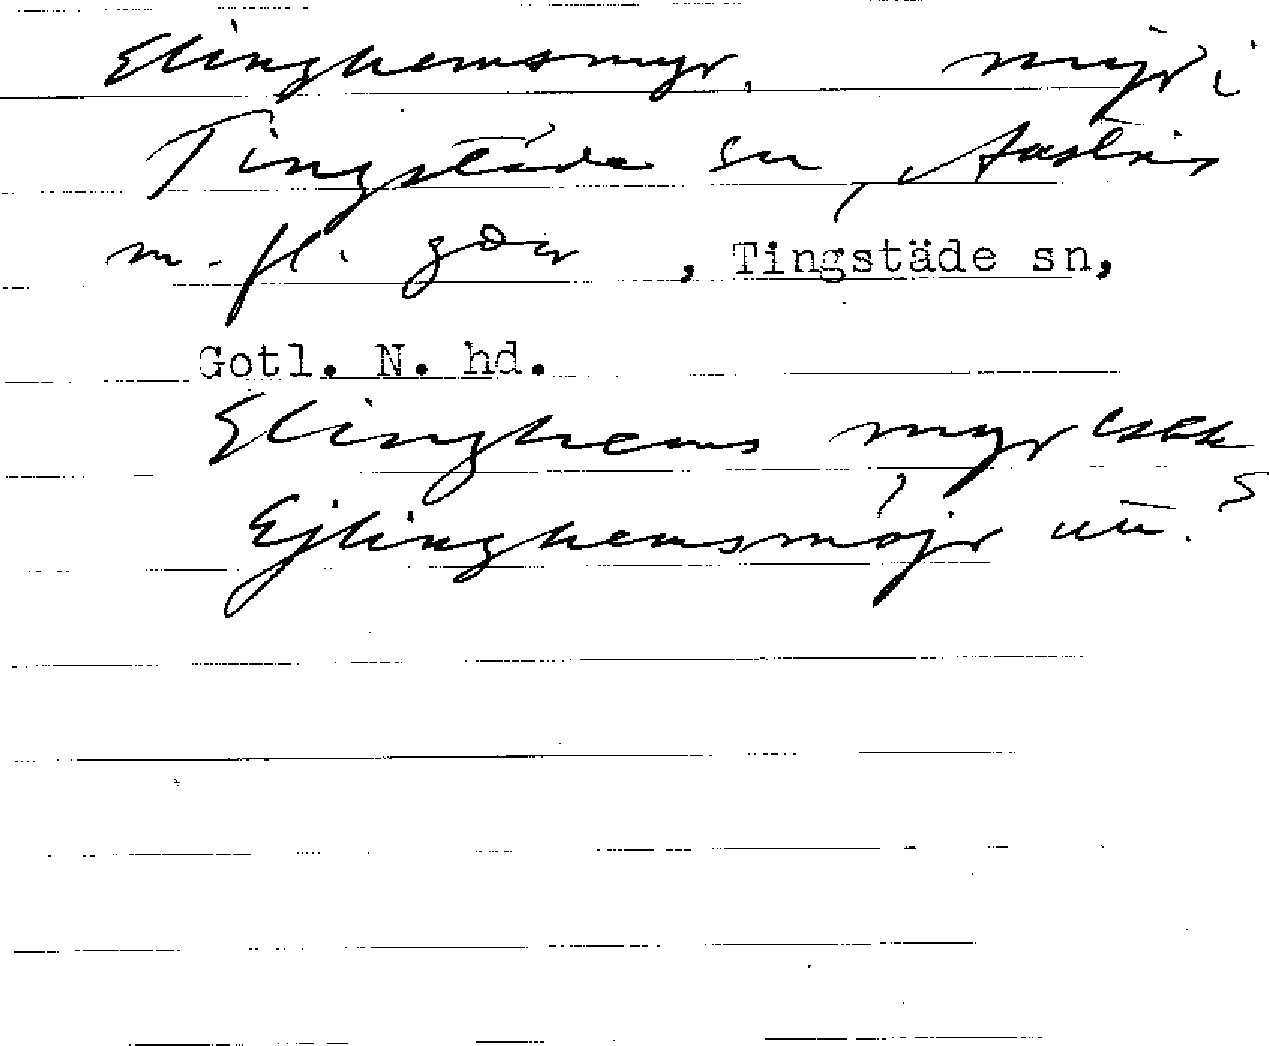 Elinghemsmyr, myr i
Tingstäde sn, Austris
m. fl. gdr, Tingstäde sn,
Gotl. N. hd.
Elinghems myr EkBk
Ejlinghemsmöjr utt.